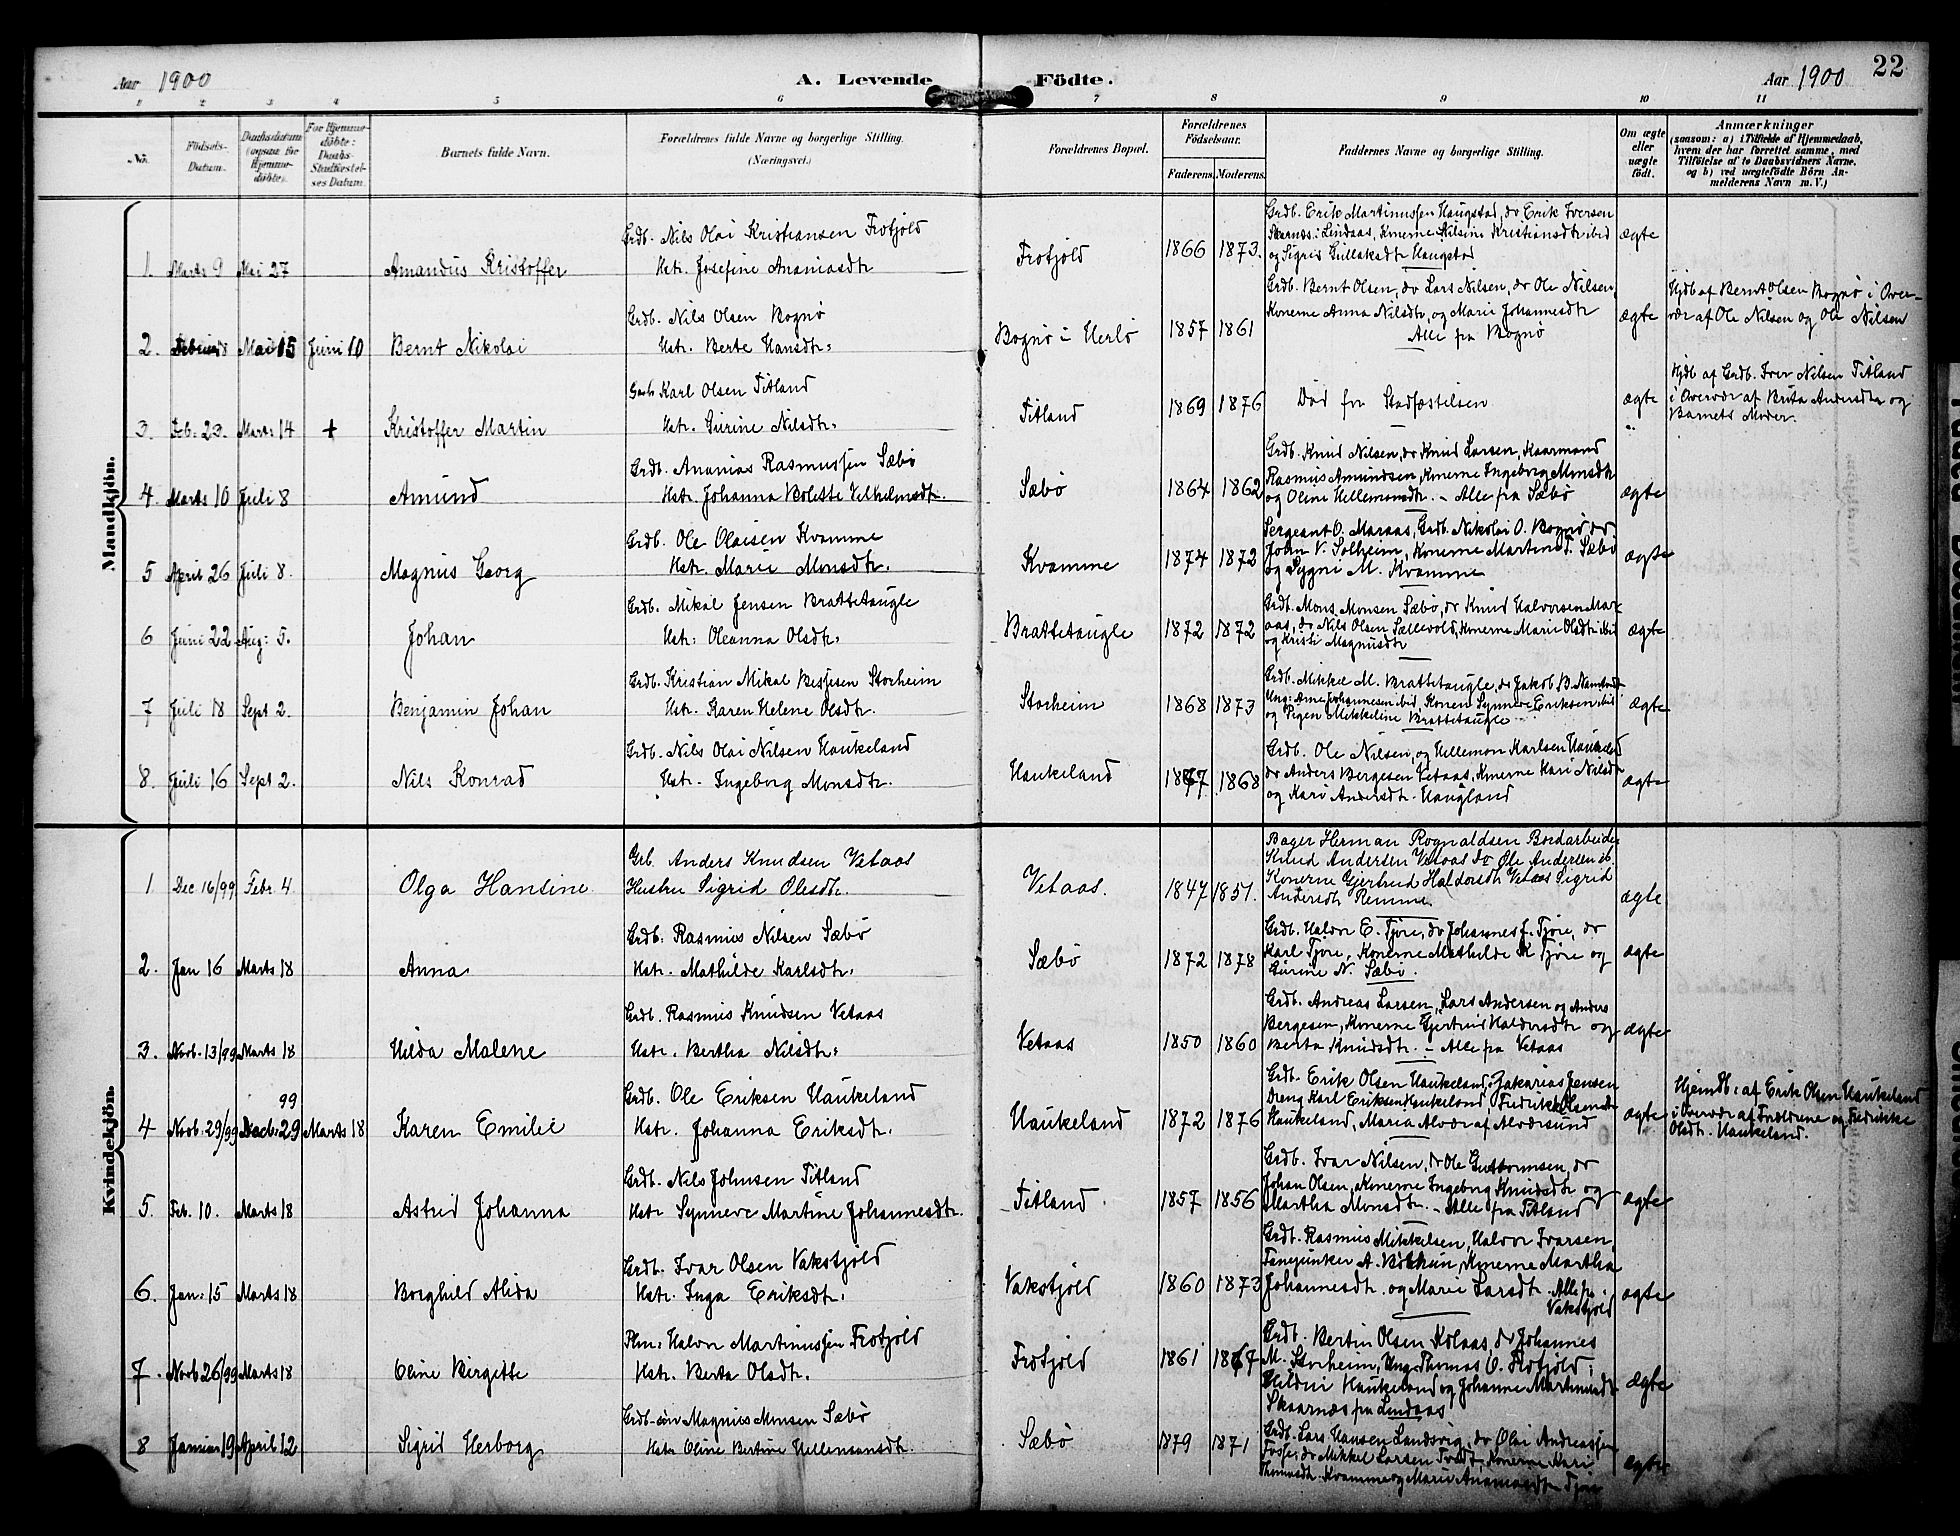 22
Aar 1900
A. Levende Födte.
Aar 1900
1 2 3 4 5 6 7 8 9 10 11
No.
Födsels-Datum.
Daabsdatum (ogsaa for Hjemme-døbte).
For Hjemme-døbte: Daabs-Stadfæstel-ses Datum.
Barnets fulde Navn.
Forældrenes fulde Navne og borgerlige Stilling.
(Næringsvei.)
Forældrenes Bopæl.
Forældrenes Födselsaar.
Faderens. Moderens.
Faddernes Navne og borgerlige Stilling.
Om ægte eller uægte født.
Anmærkninger
(saasom: a) i Tilfælde af Hjemmedaab,
hvem der har forrettet samme, med
Tilföielse af to Daabsvidners Navne,
og b) ved uægtefödte Börn An-
melderens Navn m. V.)
Mandkjön.
1. Marts 9 Mai 27 Amandus Kristoffer
Grdb. Nils Olai Kristiansen Frotjold
Hstr. Josefine Ananiasdtr
Frotjold 1866 1873.
Grdb. Erik Martinussen Haugstad, do Erik Iversen
Skarnes i Lindaas, Konerne Nilsine Kristiansdtr ibid
og Sigrid Gullaksdtr Haugstad
ægte
2. 8 Mai 15 Juni 10 Bernt Nikolai
Grdb. Nils Olsen Bognø
Hstr. Berte Hansdtr.
Bognø i Herlø 1857 1861
Grdb. Bernt Olsen, do Lars Nilsen, do Ole Nilsen,
Konerne Anna Nilsdtr, og Marie Johannesdtr
Alle fra Bognø
ægte
Hjdb af Bernt Olsen Bognø i Over-
vær af Ole Nilsen og Ole Nilsen
3. Feb. 23. Marts 14 + Kristoffer Martin
Karl Olsen Titland
Hstr. Gurine Nilsdtr.
Titland 1869 1876
Død før Stadfæstelsen
ægte
Hjdb af Grdb. Iver Nilsen Titland
i Overvær af Brita Andersdtr og
Barnets Moder.
4 Marts 10 Juli 8 Amund
Grdb. Ananias Rasmussen Sæbø
Hstr. Johanna Bolette Vilhelmsdtr.
Sæbø 1864 1862
Grdb. Knud Nilsen, do Knud Larsen, Kaarmand
Rasmus Amundsen, Konerne Ingeborg Monsdtr
og Oline Hellemsdtr. – Alle fra Sæbø
ægte
5 April 26 Juli 8. Magnus Georg
Grdb. Ole Olaisen Kvamme
Hstr. Marie Monsdtr.
Kvamme 1874 1872
Sergeant O. Maraas, Grdb. Nikolai O. Bognø do
John V. Solheim, Konerne Martine T. Sæbø
og M. Kvamme
ægte
6 Juni 22 Aug: 5. Johan
Grdb. Mikal Jensen Brattetaugle
Hstr: Oleanna Olsdtr.
Brattetaugle 1872 1872
Grdb. Mons Monsen Sæbø, do Knud Halvorsen Mar-
aas, do Nils Olsen Sællevold, Konerne Marie Olsdtr ibid
og Kristi Magnusdtr
ægte
7 Juli 18 Sept 2. Benjamin Johan
Grdb. Kristian Mikal Storheim
Hstr. Karen Helene Olsdtr.
Storheim 1868 1873
Grdb. Mikkel M. Brattetaugle, do Jakob B.
Ung: Arne Johannesen ibid, Konen Synneve Eriksen ibid
og Pigen Mikkeline Brattetaugle
ægte
8. Juli 16 Sept 2. Nils Konrad
Grdb. Nils Olai Nilsen Haukeland
Hstr. Ingeborg Monsdtr.
Haukeland 1868
Grdb. Ole Nilsen, og Hellemon Karlsen Haukeland
do Anders Bergesen Vetaas, Konerne Kari Nilsdtr
og Kari Andersdtr. Haugland
ægte
Kvindekjön.
1 Dec. 16/99 Febr. 4 Olga Hansine
Grb. Anders Knudsen Vetaas
Hustru Sigrid Olesdtr.
Vetaas. 1847 1851.
Bager Herman Rognaldsen Bordarbeider
Knud Andersen Vetaas do Ole Andersen ib.
Konerne Gjertrud Haldorsdtr Vetaas Sigrid
Andersdtr Remme.
ægte
2. Jan 16 Marts 18 Anna
Grdb: Rasmus Nilsen Sæbø
Hstr. Mathilde Karlsdtr.
Sæbø 1872 1878
Grdb. Halvor E. Fjøre, do Johannes J. Fjøre, do
Karl Fjøre, Konerne Mathilde K Fjøre og
Gurine N. Sæbø.
ægte
3. Novb. 13/99 Marts 18 Hilda Malene
Grdb. Rasmus Knudsen Vetaas
Hstr. Bertha Nilsdtr.
Vetaas 1850 1860
Grdb. Andreas Larsen, Lars Andersen og Anders
Bergesen, Konerne Gjertrud Haldorsdtr og
Berta Knudsdtr. – Alle fra Vetaas
ægte
4 Novb. 29/99 Decb: 29 99 Marts 18 Karen Emilie
Grdb. Ole Eriksen Haukeland
Hstr. Johanna Eriksdtr.
Haukeland 1872 1876
Grdb. Erik Olsen Haukeland, Zakarias Jensen
Dreng Karl Eriksen Haukeland, Fredrikke Olsensdtr
Haukeland, Maria Alvær af Alværsund
ægte
Hjemdb: af Erik Olsen Haukeland
i Overvær af Forældrene og Fredrikke
Olsdtr. Haukeland.
5. Feb. 10. Marts 18 Astrid Johanna
Grdb. Nils Johnsen Titland
Hstr Synneve Martine Johannesdtr.
Titland 1857 1856
Grdb. Ivar Nilsen, do Ole Guttormsen, do
Johan Olsen, Konerne Ingeborg Knudsdtr og
Martha Monsdtr. – Alle fra Titland
ægte
6. Jan: 15 Marts 18 Borghild Alida
Grdb. Ivar Olsen Vakstjold
Hstr. Inga Eriksdtr.
Vakstjold 1860 1873
Grdb. Rasmus Mikkelsen, Halvor Ivarsen,
Fanejunker A. , Konerne Martha
Johannesdtr. og Marie Larsdtr. Alle fra
Vakstjold
ægte
7. Novb 26/99 Marts 18 Oline Birgitte
Plm: Halvor Martinussen Frotjold
Hstr. Berta Olsdtr.
Frotjold 1861 1867
Grdb. Bertin Olsen Kolaas, do Johannes
M. Storheim, Ung: Thomas O. Frotjold,
Haukeland og Johanne Martinusdtr
Skaarnæs fra Lindaas
ægte
8 Januar 19 April 12 Sigrid Herborg
Grdb-søn Magnus Monsen Sæbø
Hstr Oline Bertine Hellemsdtr.
Sæbø 1879 1871
Grdb. Lars Hansen Landsvig, do Olai Andreassen
Fosse, do Mikkel Larsen Tvedt, Konerne Kari
Kvamme og Marie Ananiasdtr Fjøre
ægte